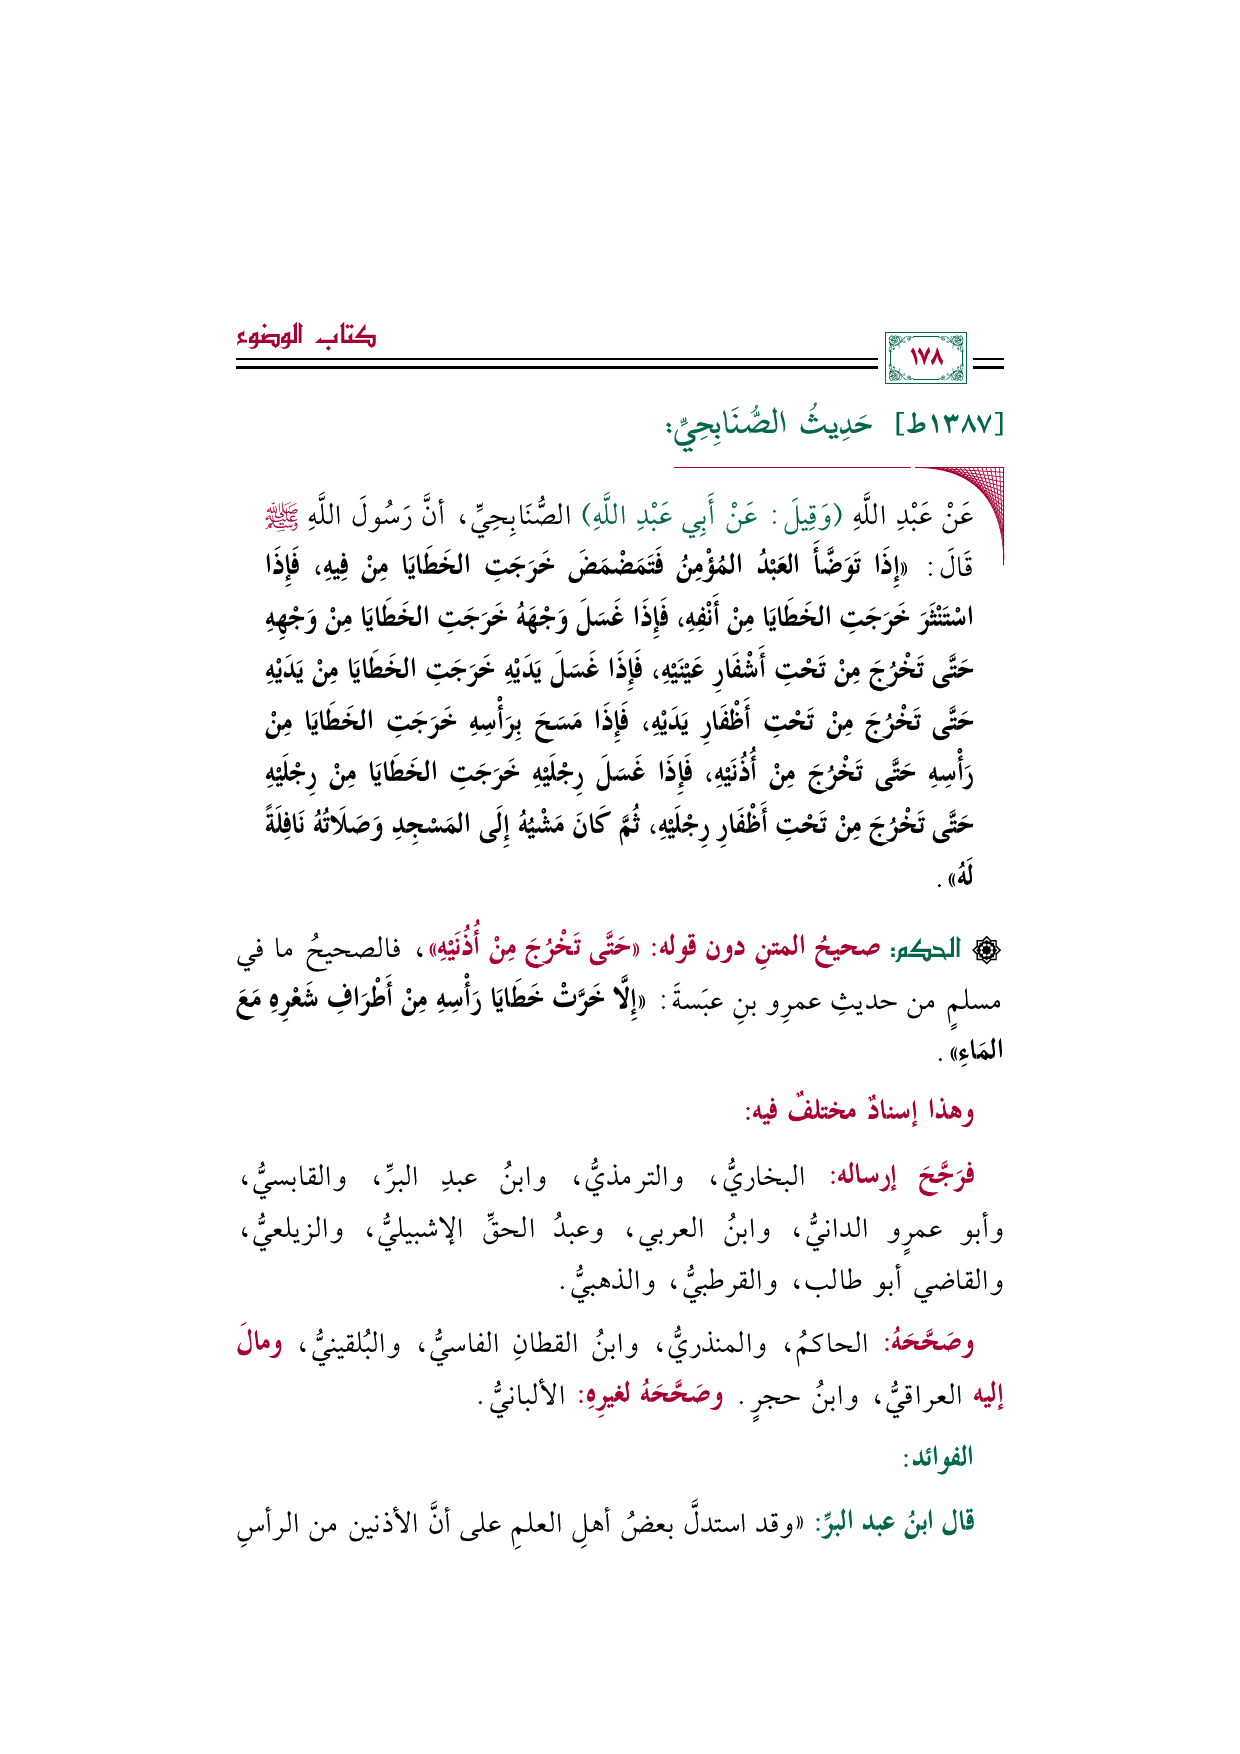 كتاب الوضوء
١٧٨
[١٣٨٧ط] حَدِيثُ الصُّنَابِحِيِّ:
عَنْ عَبْدِ اللَّهِ (وَقِيلَ: عَنْ أَبِي عَبْدِ اللَّهِ) الصُّنَابِحِيِّ، أنَّ رَسُولَ اللَّهِ ﷺ
قَالَ: «إِذَا تَوَضَّأَ العَبْدُ المُؤْمِنُ فَتَمَضْمَضَ خَرَجَتِ الخَطَايَا مِنْ فِيهِ، فَإِذَا
اسْتَنْثَرَ خَرَجَتِ الخَطَايَا مِنْ أَنْفِهِ، فَإِذَا غَسَلَ وَجْهَهُ خَرَجَتِ الخَطَايَا مِنْ وَجْهِهِ
حَتَّى تَخْرُجَ مِنْ تَحْتِ أَشْفَارِ عَيْنَيْهِ، فَإِذَا غَسَلَ يَدَيْهِ خَرَجَتِ الخَطَايَا مِنْ يَدَيْهِ
حَتَّى تَخْرُجَ مِنْ تَحْتِ أَظْفَارِ يَدَيْهِ، فَإِذَا مَسَحَ بِرَأْسِهِ خَرَجَتِ الخَطَايَا مِنْ
رَأْسِهِ حَتَّى تَخْرُجَ مِنْ أُذُنَيْهِ، فَإِذَا غَسَلَ رِجْلَيْهِ خَرَجَتِ الخَطَايَا مِنْ رِجْلَيْهِ
حَتَّى تَخْرُجَ مِنْ تَحْتِ أَظْفَارِ رِجْلَيْهِ، ثُمَّ كَانَ مَشْيُهُ إِلَى المَسْجِدِ وَصَلَاتُهُ نَافِلَةً
لَهُ».
الحكم: صحيحُ المتنِ دون قوله: «حَتَّى تَخْرُجَ مِنْ أُذُنَيْهِ»، فالصحيحُ ما في
مسلمٍ من حديثِ عمرِو بنِ عبَسةَ: «إِلَّا خَرَّتْ خَطَايَا رَأْسِهِ مِنْ أَطْرَافِ شَعْرِهِ مَعَ
المَاءِ».
وهذا إسنادٌ مختلفٌ فيه:
فرَجَّحَ إرساله: البخاريُّ، والترمذيُّ، وابنُ عبدِ البرِّ، والقابسيُّ،
وأبو عمرٍو الدانيُّ، وابنُ العربي، وعبدُ الحقِّ الإشبيليُّ، والزيلعيُّ،
والقاضي أبو طالب، والقرطبيُّ، والذهبيُّ.
وصَحَّحَهُ: الحاكمُ، والمنذريُّ، وابنُ القطانِ الفاسيُّ، والبُلقينيُّ، ومالَ
إليه العراقيُّ، وابنُ حجرٍ. وصَحَّحَهُ لغيرِهِ: الألبانيُّ.
الفوائد:
قال ابنُ عبد البرِّ: «وقد استدلَّ بعضُ أهلِ العلمِ على أنَّ الأذنين من الرأسِ